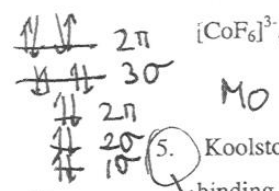 2π [CoF₆]³⁻
3σ
MO
2π
2σ 5. Koolsto
1σ
binding